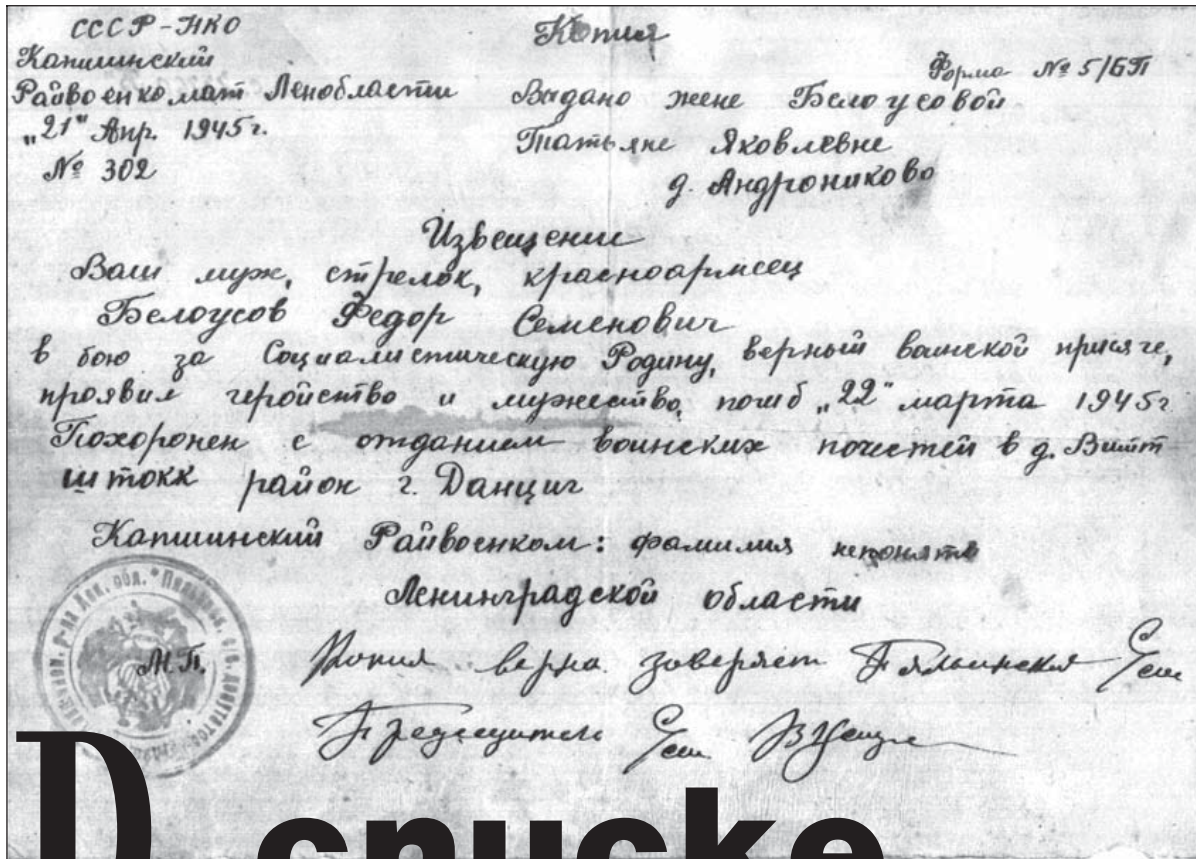 СССР-НКО
Капшинский
Райвоенкомат Ленобласти
„21" Апр. 1945г.
№ 302
Копия
Форма № 5/БП
Выдано жене Белоусовой
Татьяне Яковлевне
д. Андрониково
Извещение
Ваш муж, стрелок, красноармеец
Белоусов Федор Семенович
в бою за Социалистическую Родину, верный воинской присяге,
проявив геройство и мужество, погиб „22" марта 1945г
Похоронен с отданием воинских почестей в д. Витт
штокк район г. Данциг
Капшинский Райвоенком: фамилия
Ленинградской области
М.П.
Копия верна заверяет
Председатель
списке